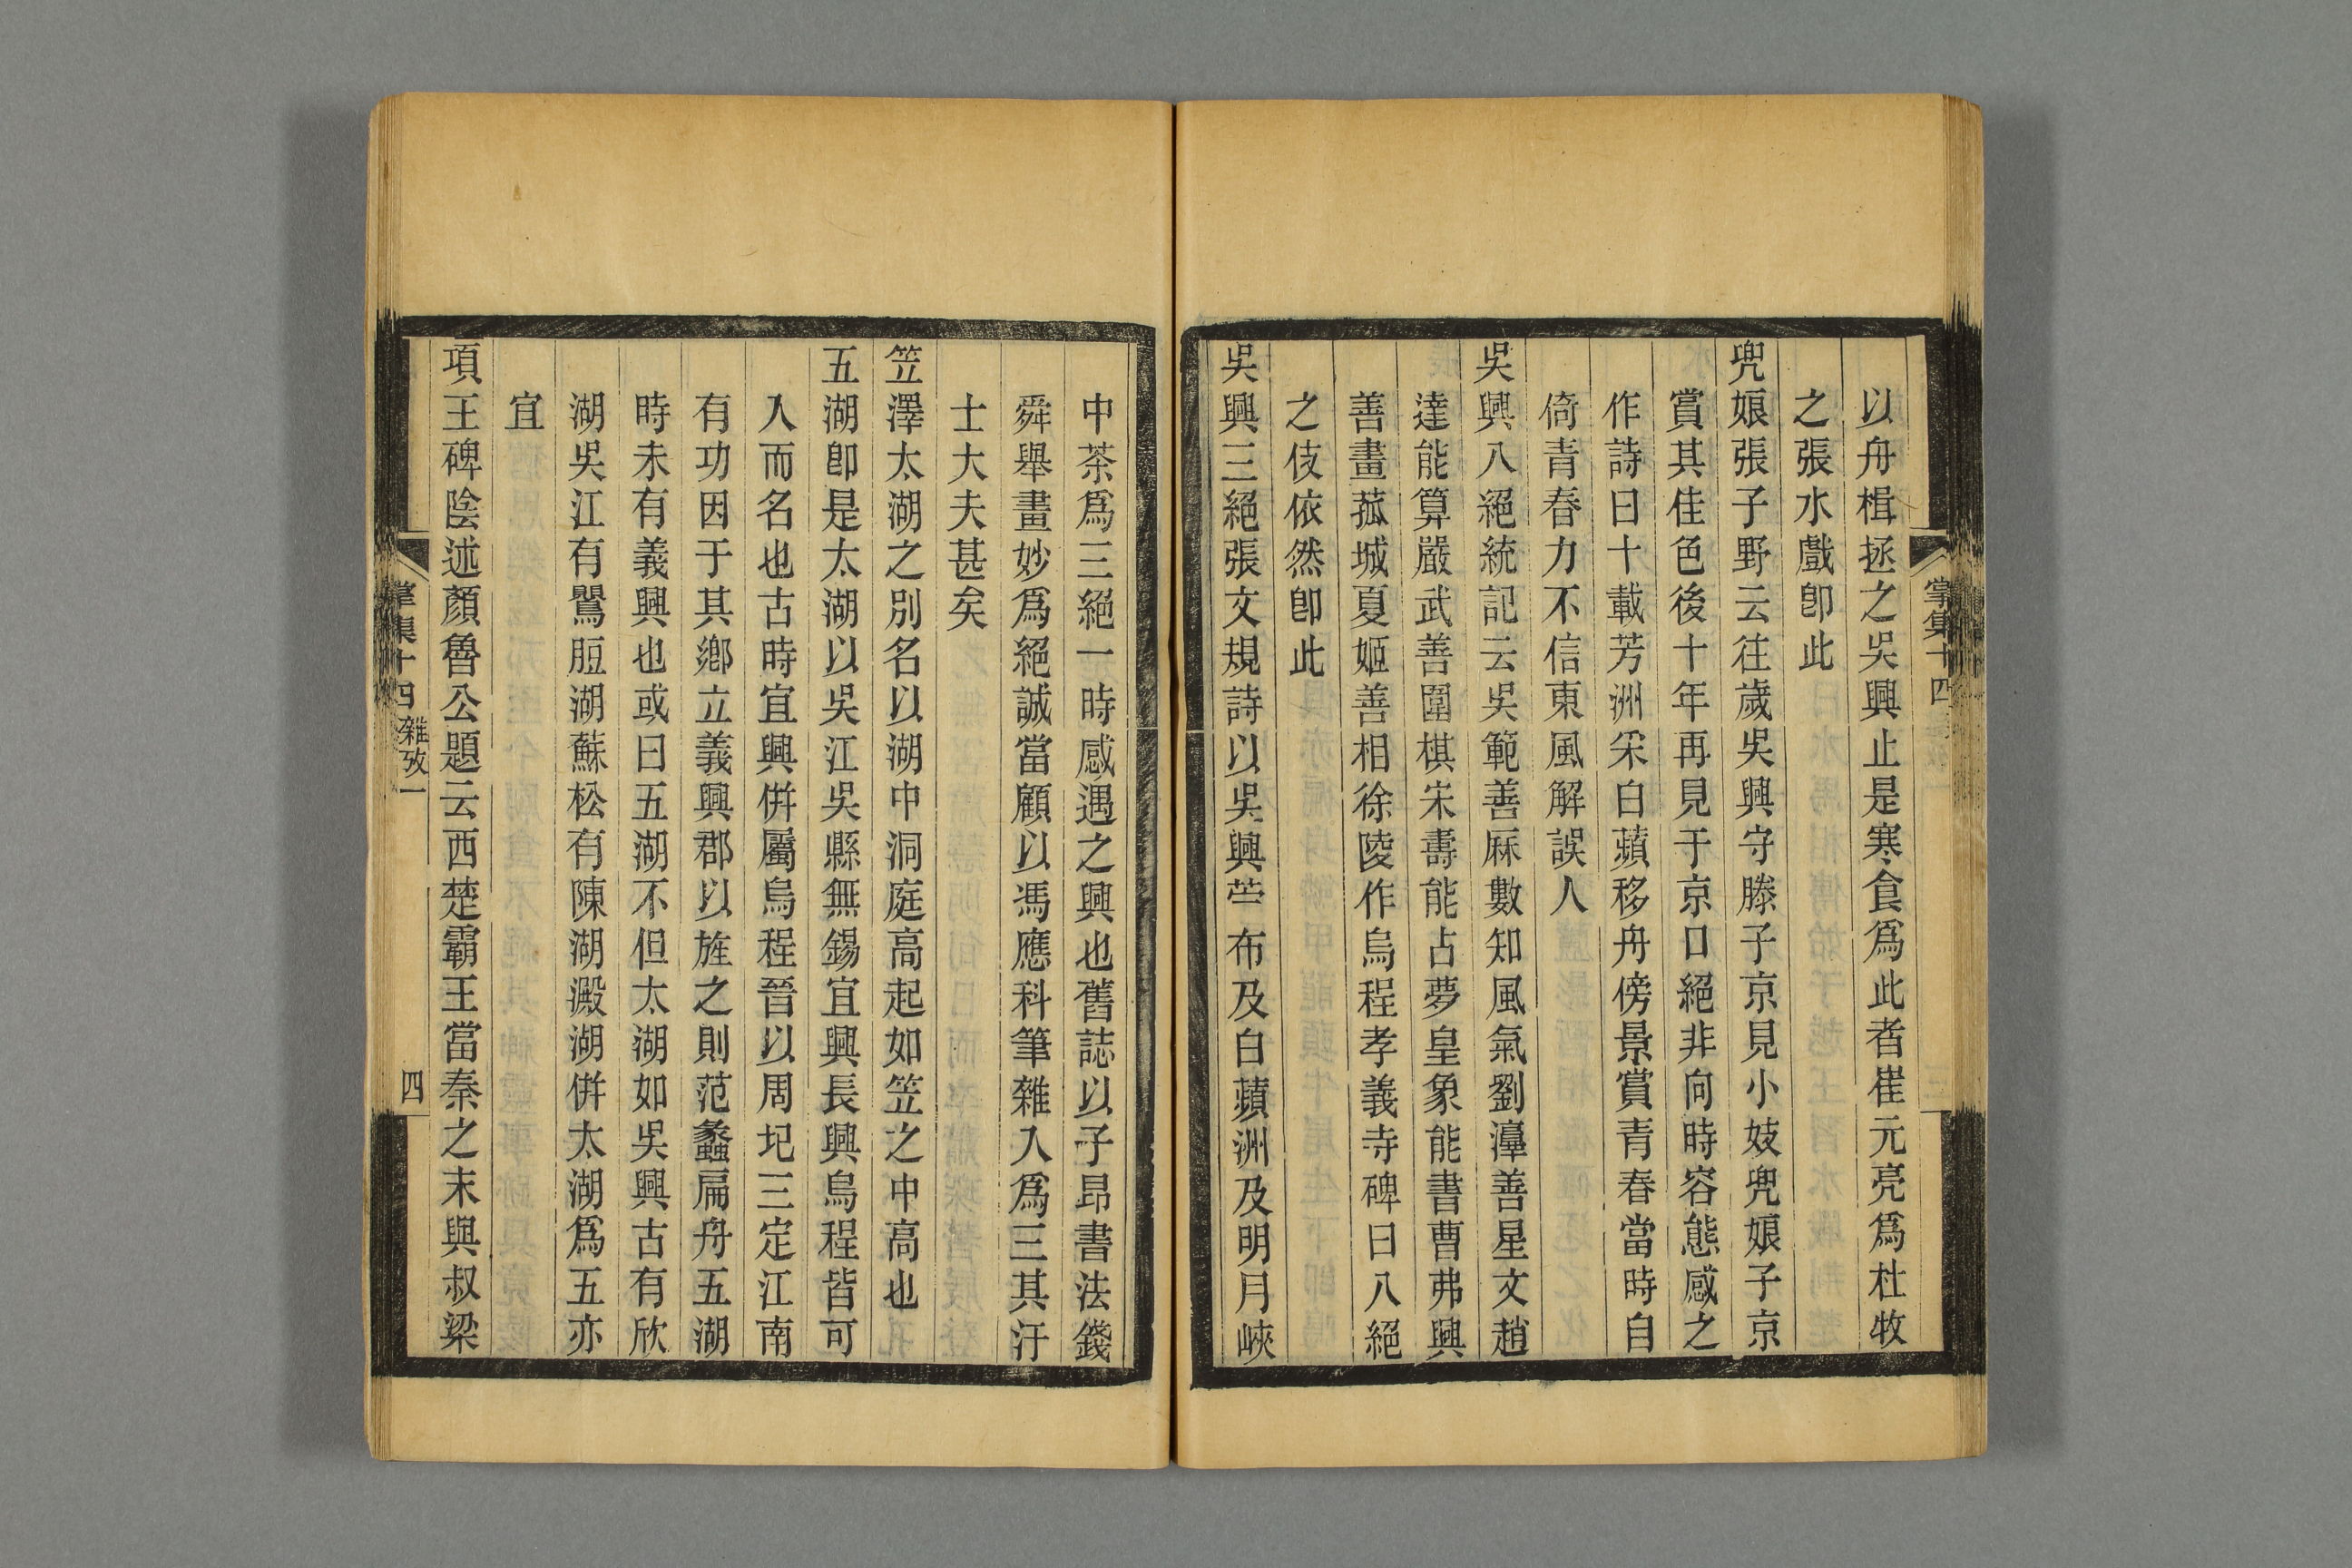 以舟楫拯之吳興止是寒食爲此者崔元亮爲杜牧
之張水戲卽此
兜娘張子野云往歲吳興守滕子京見小妓兜娘子京
賞其佳色後十年再見于京口絕非向時容態感之
作詩曰十載芳洲采白蘋移舟傍景賞青春當時自
倚青春力不信東風解誤人
吳興八絕統記云吳範善厤數知風氣劉灋善星文趙
達能算嚴武善圍棋宋壽能占夢皇象能書曹弗興
善畫菰城夏姬善相徐陵作烏程孝義寺碑曰八絕
之伎依然卽此
吳興三絕張文規詩以吳興苎布及白蘋洲及明月峽
中茶爲三絕一時感遇之興也舊誌以子昂書法錢
舜舉畫妙爲絕誠當顧以馮應科筆雜入爲三其汙
士大夫甚矣
笠澤太湖之別名以湖中洞庭高起如笠之中高也
五湖卽是太湖以吳江吳縣無錫宜興長興烏程皆可
入而名也古時宜興併屬烏程晉以周圮三定江南
有功因于其鄉立義興郡以旌之則范蠡扁舟五湖
時未有義興也或曰五湖不但太湖如吳興古有欣
湖吳江有鶯脰湖蘇松有陳湖澱湖併太湖爲五亦
宜
項王碑陰述顏魯公題云西楚霸王當秦之末與叔梁
掌集十四 雜攷一 四
掌集十四